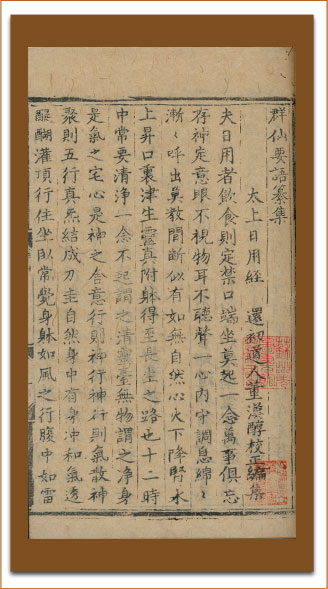 群仙要語纂集
太上日用經 還初道人董漢醇校正編集
夫日用者飲食則定禁口端坐莫起一念萬事俱忘
存神定意眼不視物耳不聽聲一心內守調息綿〻
漸〻呼出莫教間斷似有如無自然心火下降腎水
上昇口裏津生靈真附躰得至長生之路也十二時
中常要清淨一念不起謂之清靈臺無物謂之淨身
是氣之宅心是神之舍意行則神行神行則氣散神
聚則五行真炁結成刀圭自然身中有身冲和氣透
醍醐灌頂行住坐臥常覺身躰如風之行腹中如雷